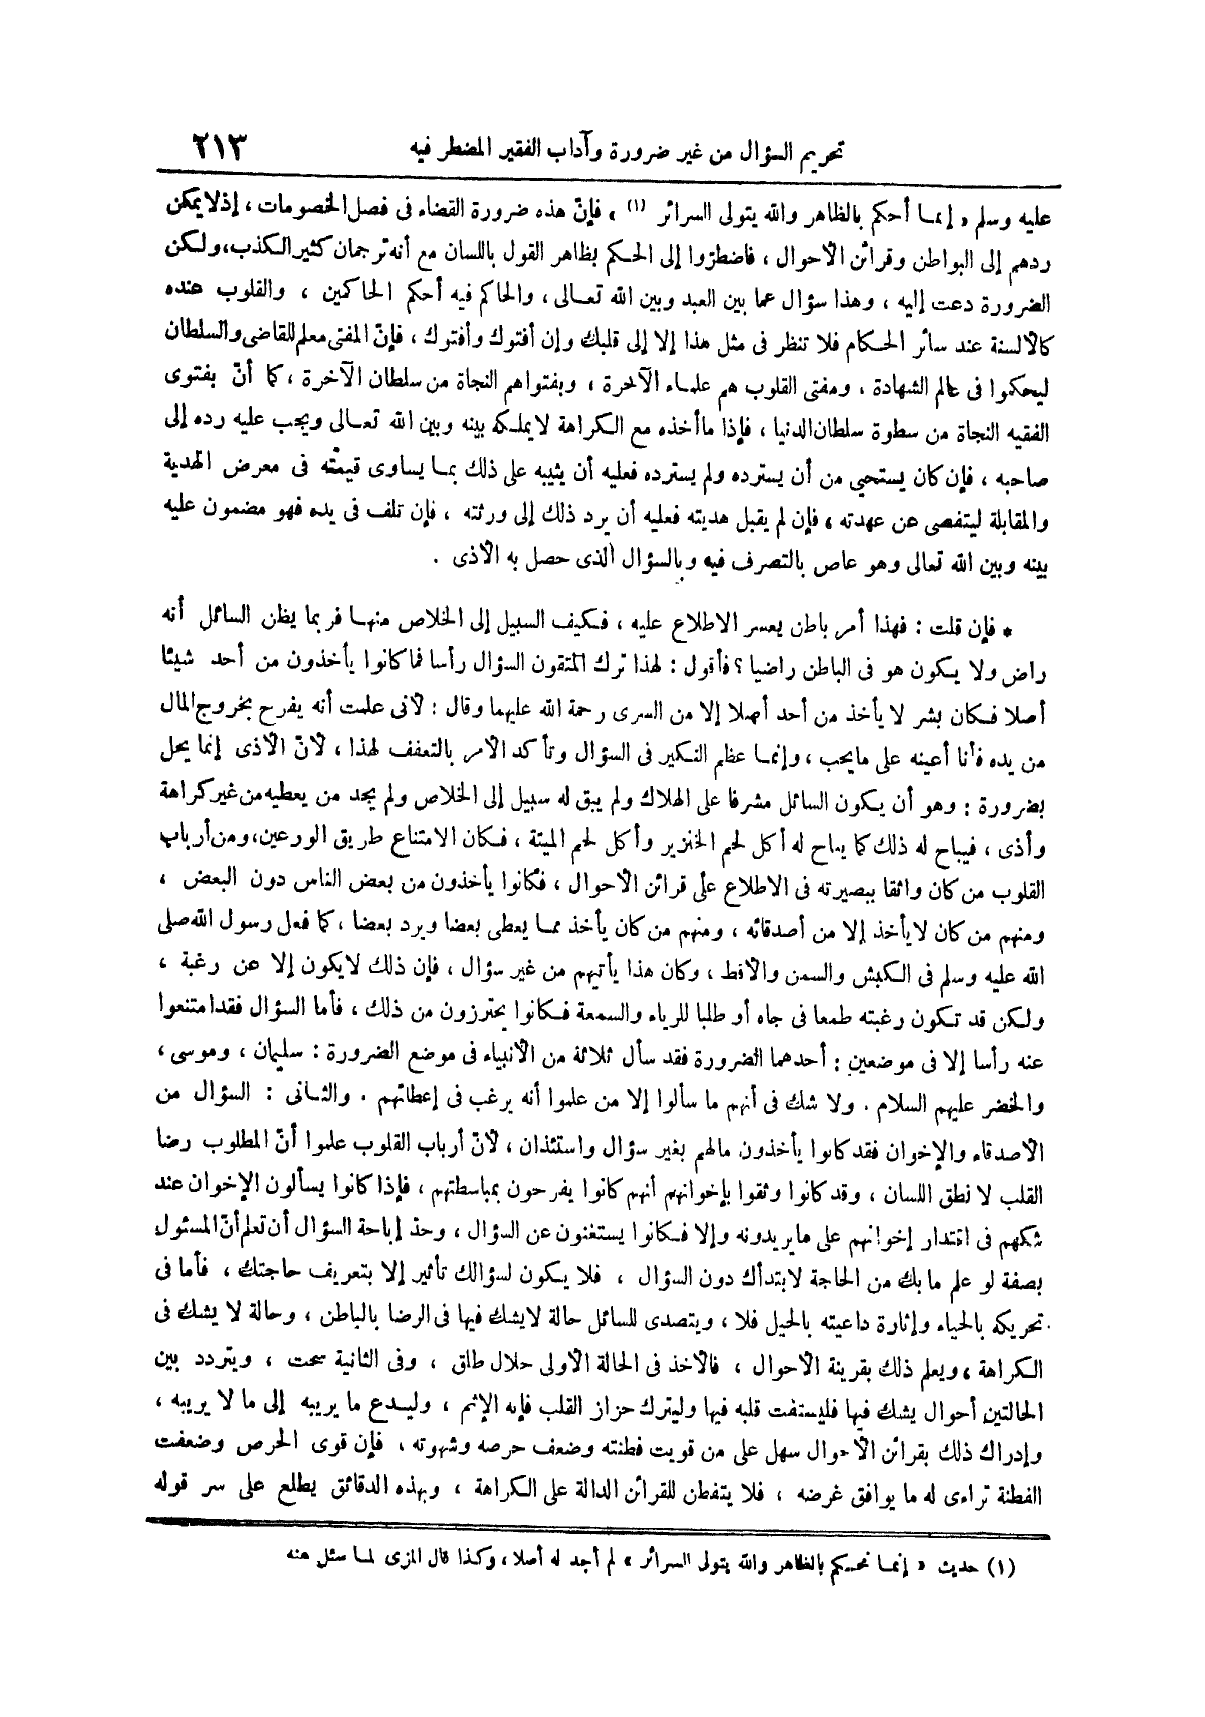 تحريم السؤال من غير ضرورة وآداب الفقير المضطر فيه ٢١٣
عليه وسلم « إنما أحكم بالظاهر والله يتولى السرائر (١) » فإنّ هذه ضرورة القضاء فى فصل الخصومات ، إذ لا يمكن
ردهم إلى البواطن وقرائن الأحوال ، فاضطرّوا إلى الحكم بظاهر القول باللسان مع أنه ترجمان كثير الكذب، ولكن
الضرورة دعت إليه ، وهذا سؤال عما بين العبد وبين الله تعالى ، والحاكم فيه أحكم الحاكمين ، والقلوب عنده
كالألسنة عند سائر الحكام فلا تنظر فى مثل هذا إلا إلى قلبك وإن أفتوك وأفتوك ، فإنّ المفتى معلم للقاضى والسلطان
ليحكموا فى عالم الشهادة ، ومفتى القلوب هم علماء الآخرة ، وبفتواهم النجاة من سلطان الآخرة ، كما أنّ بفتوى
الفقيه النجاة من سطوة سلطان الدنيا ، فإذا ما أخذه مع الكراهة لا يملكه بينه وبين الله تعالى ويجب عليه رده إلى
صاحبه ، فإن كان يستحيى من أن يسترده ولم يسترده فعليه أن يثيبه على ذلك بما يساوى قيمته فى معرض الهدية
والمقابلة ليتفصى عن عهدته ، فإن لم يقبل هديته فعليه أن يرد ذلك إلى ورثته ، فإن تلف فى يده فهو مضمون عليه
بينه وبين الله تعالى وهو عاص بالتصرف فيه وبالسؤال الذى حصل به الأذى .
* فإن قلت : فهذا أمر باطن يعسر الاطلاع عليه ، فكيف السبيل إلى الخلاص منها فربما يظن السائل أنه
راض ولا يكون هو فى الباطن راضيا ؟ فأقول : لهذا ترك المتقون السؤال رأسا فما كانوا يأخذون من أحد شيئا
أصلا فكان بشر لا يأخذ من أحد أصلا إلا من السرى رحمة الله عليهما وقال : لأنى علمت أنه يفرح بخروج المال
من يده فأنا أعينه على ما يحب ، وإنما عظم النكير فى السؤال وتأكد الأمر بالتعفف لهذا ، لأنّ الأذى إنما يحل
بضرورة : وهو أن يكون السائل مشرفا على الهلاك ولم يبق له سبيل إلى الخلاص ولم يجد من يعطيه من غير كراهة
وأذى ، فيباح له ذلك كما يباح له أكل لحم الخنزير وأكل لحم الميتة ، فكان الامتناع طريق الورعين، ومن أرباب
القلوب من كان واثقا ببصيرته فى الاطلاع على قرائن الأحوال ، فكانوا يأخذون من بعض الناس دون البعض ،
ومنهم من كان لا يأخذ إلا من أصدقائه ، ومنهم من كان يأخذ مما يعطى بعضا ويرد بعضا ، كما فعل رسول الله صلى
الله عليه وسلم فى الكبش والسمن والأقط ، وكان هذا يأتيهم من غير سؤال ، فإن ذلك لا يكون إلا عن رغبة ،
ولكن قد تكون رغبته طمعا فى جاه أو طلبا للرياء والسمعة فكانوا يحترزون من ذلك ، فأما السؤال فقد امتنعوا
عنه رأسا إلا فى موضعين : أحدهما الضرورة فقد سأل ثلاثة من الأنبياء فى موضع الضرورة : سليمان ، وموسى ،
والخضر عليهم السلام . ولا شك فى أنهم ما سألوا إلا من علموا أنه يرغب فى إعطائهم . والثانى : السؤال من
الأصدقاء والإخوان فقد كانوا يأخذون مالهم بغير سؤال واستئذان ، لأنّ أرباب القلوب علموا أنّ المطلوب رضا
القلب لا نطق اللسان ، وقد كانوا وثقوا بإخوانهم أنهم كانوا يفرحون بمباسطتهم ، فإذا كانوا يسألون الإخوان عند
شكهم فى اقتدار إخوانهم على ما يريدونه وإلا فكانوا يستغنون عن السؤال ، وحدّ إباحة السؤال أن تعلم أنّ المسئول
بصفة لو علم ما بك من الحاجة لابتدأك دون السؤال ، فلا يكون لسؤالك تأثير إلا بتعريف حاجتك ، فأما فى
تحريكه بالحياء وإثارة داعيته بالحيل فلا ، ويتصدى للسائل حالة لا يشك فيها فى الرضا بالباطن ، وحالة لا يشك فى
الكراهة ، ويعلم ذلك بقرينة الأحوال ، فالأخذ فى الحالة الأولى حلال طلق ، وفى الثانية سحت ، ويتردد بين
الحالتين أحوال يشك فيها فليستفت قلبه فيها وليترك حزاز القلب فإنه الإثم ، وليدع ما يريبه إلى ما لا يريبه ،
وإدراك ذلك بقرائن الأحوال سهل على من قويت فطنته وضعف حرصه وشهوته ، فإن قوى الحرص وضعفت
الفطنة تراءى له ما يوافق غرضه ، فلا يتفطن للقرائن الدالة على الكراهة ، وبهذه الدقائق يطلع على سر قوله
(١) حديث « إنما نحكم بالظاهر والله يتولى السرائر » لم أجد له أصلا ، وكذا قال المزى لما سئل عنه